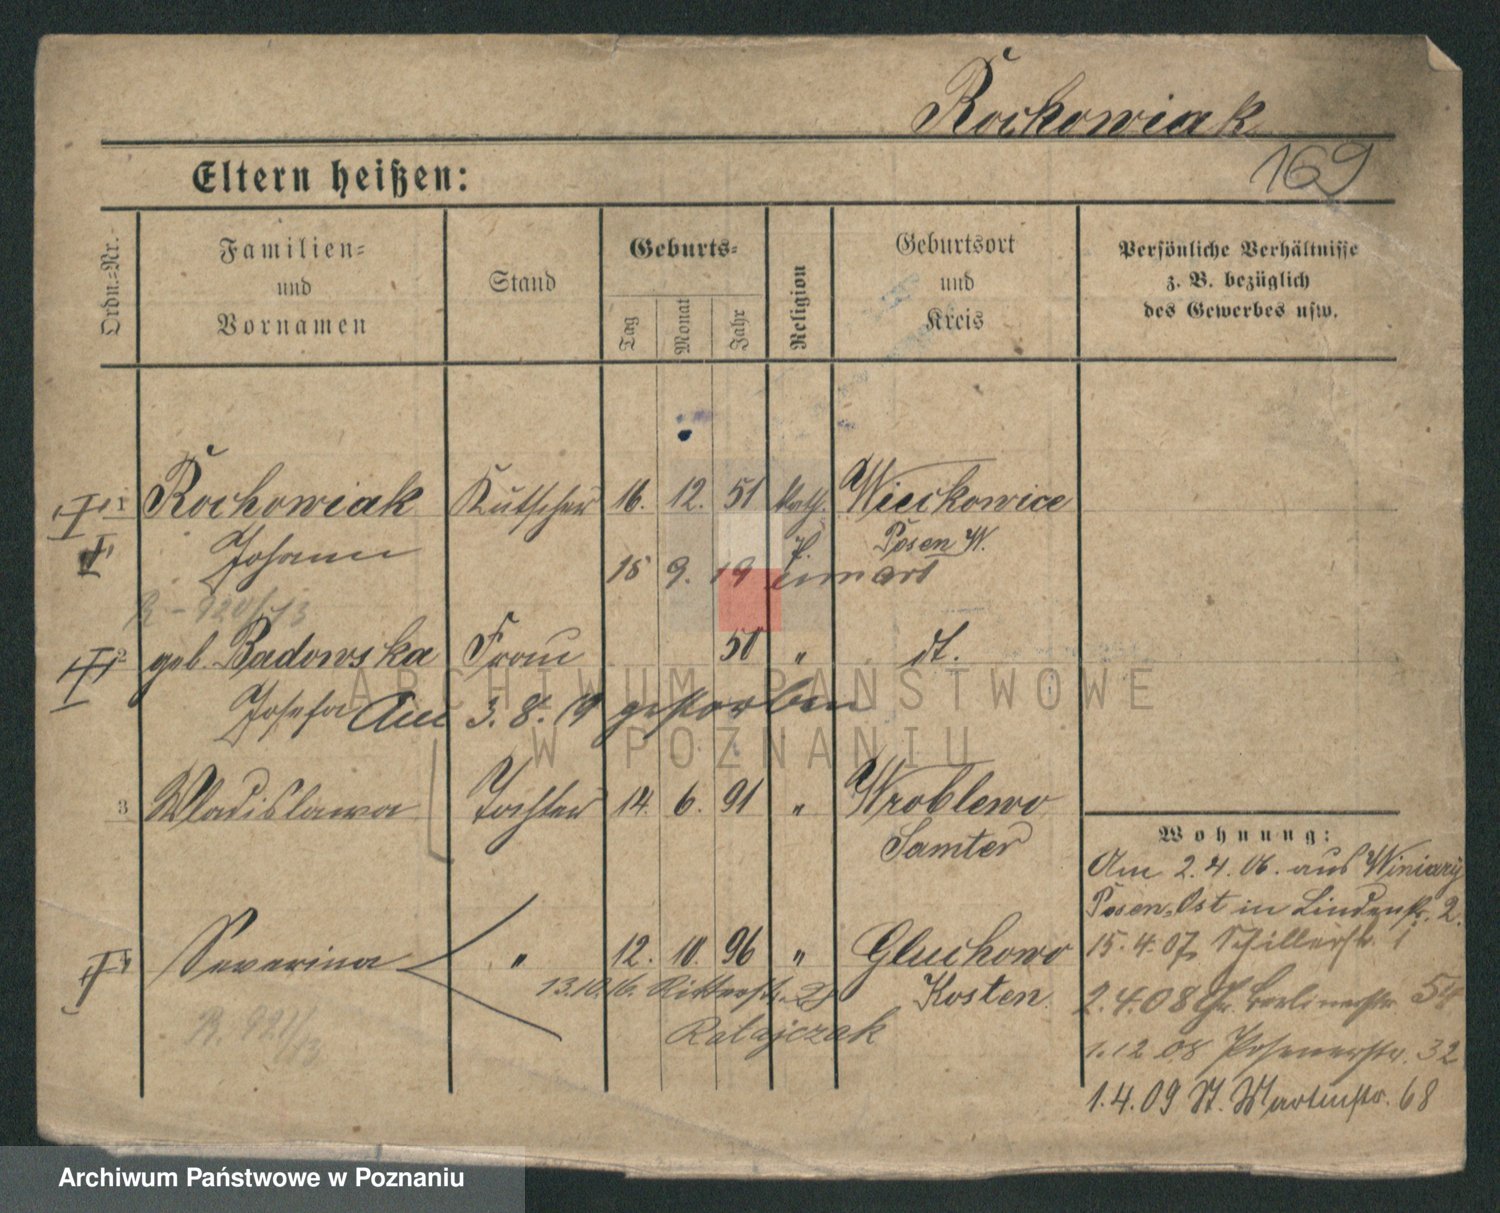 Rochowiak
169
Eltern heißen:
Ordn.=Nr.
Familien=
und
Vornamen
Stand
Geburts=
Tag
Monat
Jahr
Religion
Geburtsort
und
Kreis
Persönliche Verhältnisse
z. B. bezüglich
des Gewerbes usw.
1 Rochowiak Kutscher 16. 12. 51 Kath. Wieckowice
Johann Posen W.
15 9. 19
2 geb. Badowska Frau 50 " dt.
Josefa Am 3. 8. 19 gestorben
3 Wladislawa Tochter 14. 6. 91 " Wroblewo
Samter
4 Severina " 12. 10. 96 " Gluchowo
Kosten
13.10.16. Ritterstr. 21
Ratajczak
Wohnung:
Am 2.4.06. aus Winiary
Posen-Ost in Lindenstr. 2.
15.4.07. Schillerstr. 1
2.4.08 Gr. Berlinerstr. 54
1.12.08 Posenerstr. 32
1.4.09 St. Martinstr. 68
ARCHIWUM PAŃSTWOWE
W POZNANIU
Archiwum Państwowe w Poznaniu